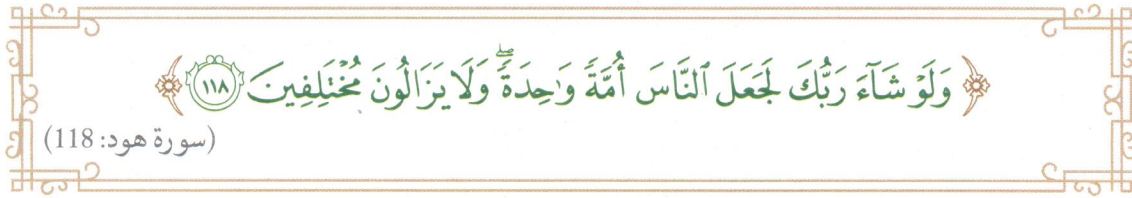 ﴿ وَلَوْ شَآءَ رَبُّكَ لَجَعَلَ ٱلنَّاسَ أُمَّةً وَٰحِدَةً ۖ وَلَا يَزَالُونَ مُخْتَلِفِينَ ١١٨ ﴾
(سورة هود: 118)